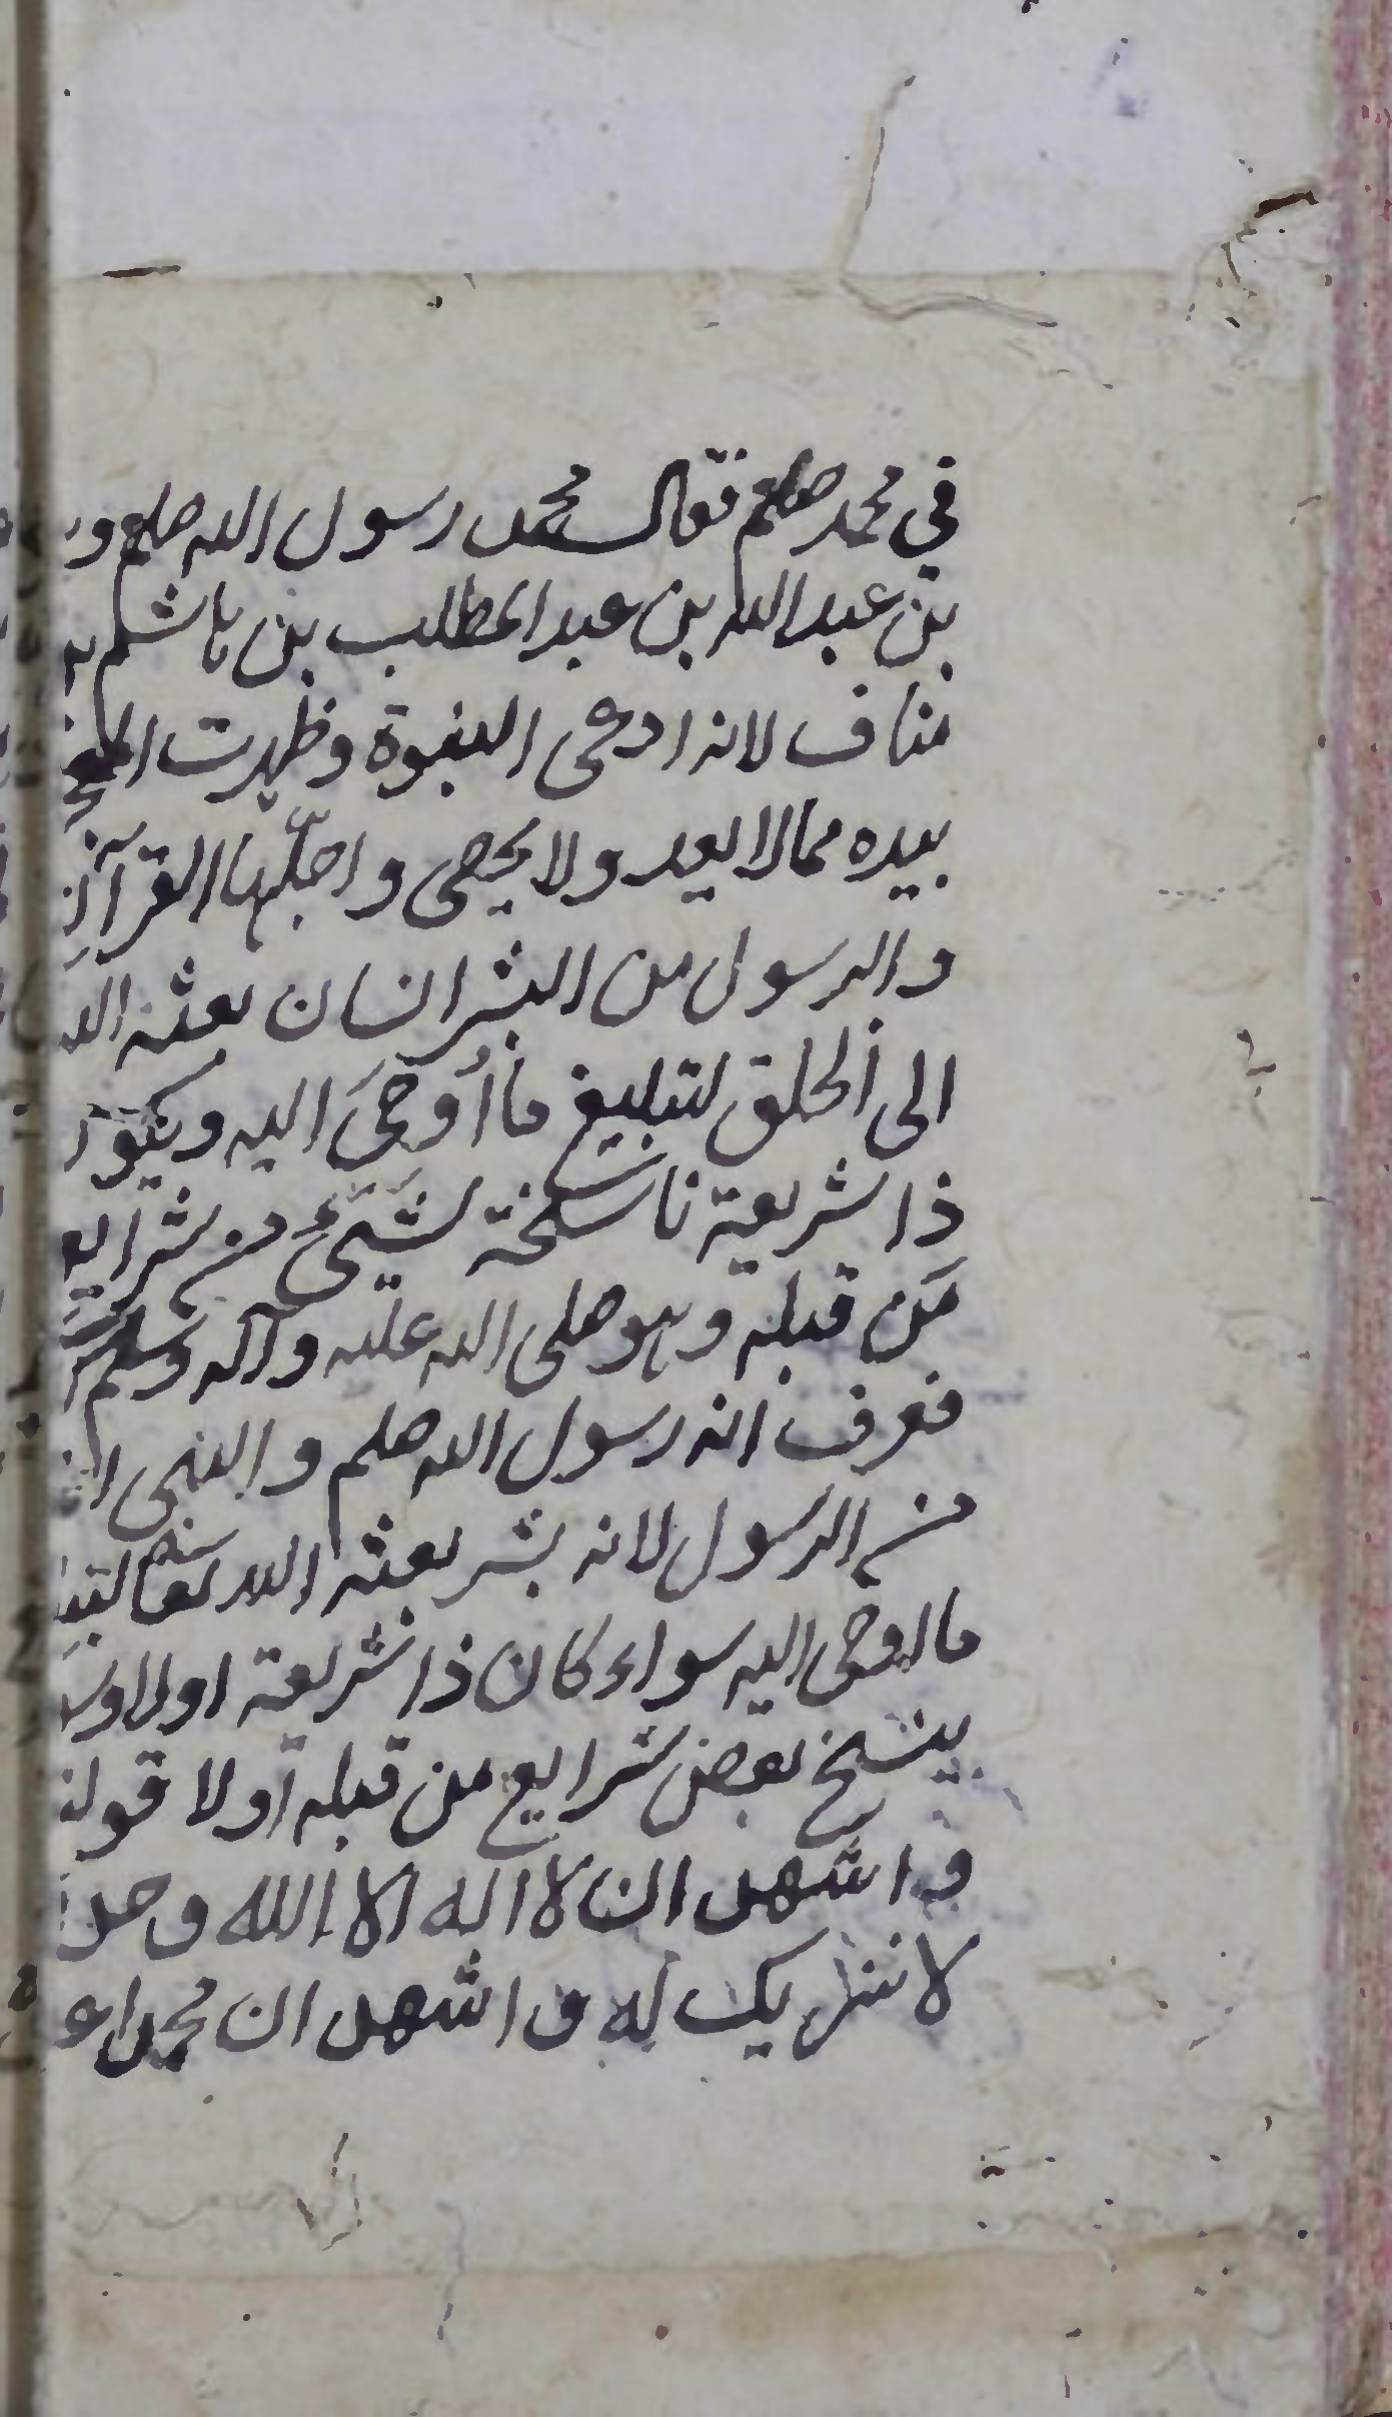 في محمد صلعم فقال محمد رسول الله صلعم و
بن عبد الله بن عبد المطلب بن هاشم
مناف لانه ادعى النبوة وظهرت المعج
بيده مما لا يعد ولا يحصى واجلّها القرآن
والرسول من البشر انسان بعثه الله
الى الخلق لتبليغ ما أُوحِيَ اليه ويكون
ذا شريعة ناسخة لشيءٍ من شرايع
مَن قبله وهو صلى الله عليه وآله وسلم
فعرف انه رسول الله صلعم والنبي
من الرسول لانه بشر بعثه الله تعا لتبل
ما اوحى اليه سواء كان ذا شريعة اولا و
ينسخ بعض شرايع من قبله او لا قوله
و اشهد ان لا اله الا الله وحد
لا شريك له و اشهد ان محمدا ع